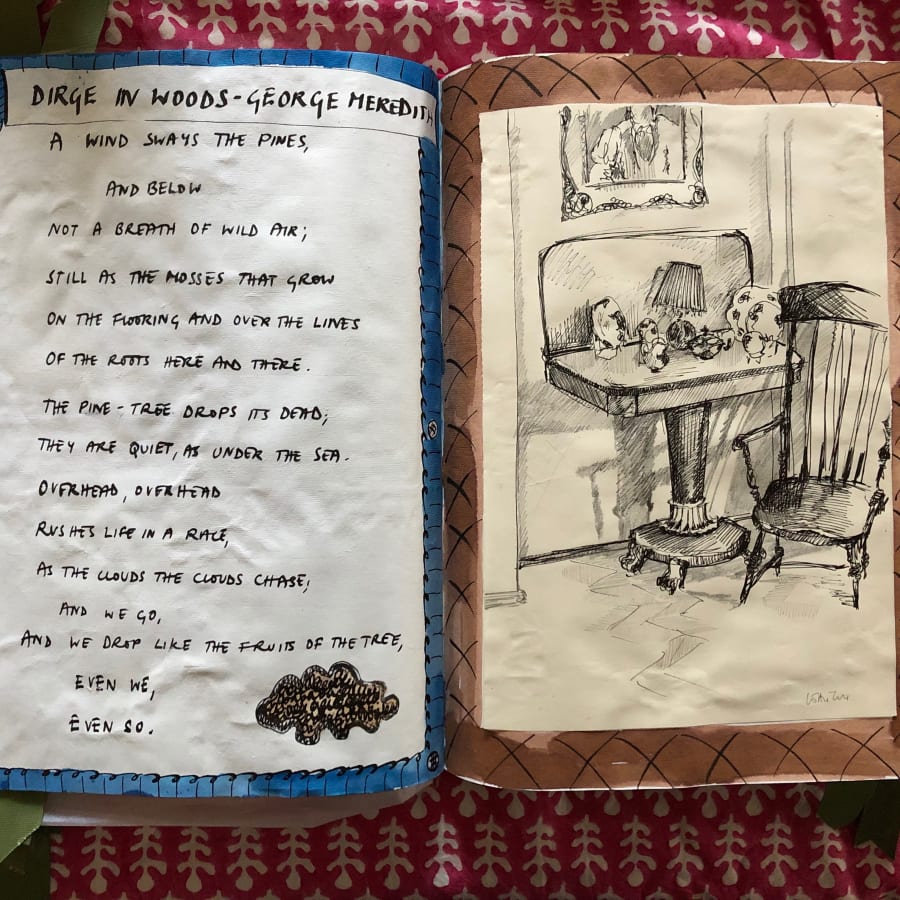 DIRGE IN WOODS - GEORGE MEREDITH
A WIND SWAYS THE PINES,
AND BELOW
NOT A BREATH OF WILD AIR;
STILL AS THE MOSSES THAT GROW
ON THE FLOORING AND OVER THE LINES
OF THE ROOTS HERE AND THERE.
THE PINE-TREE DROPS ITS DEAD;
THEY ARE QUIET, AS UNDER THE SEA.
OVERHEAD, OVERHEAD
RUSHES LIFE IN A RACE,
AS THE CLOUDS THE CLOUDS CHASE;
AND WE GO,
AND WE DROP LIKE THE FRUITS OF THE TREE,
EVEN WE,
EVEN SO.